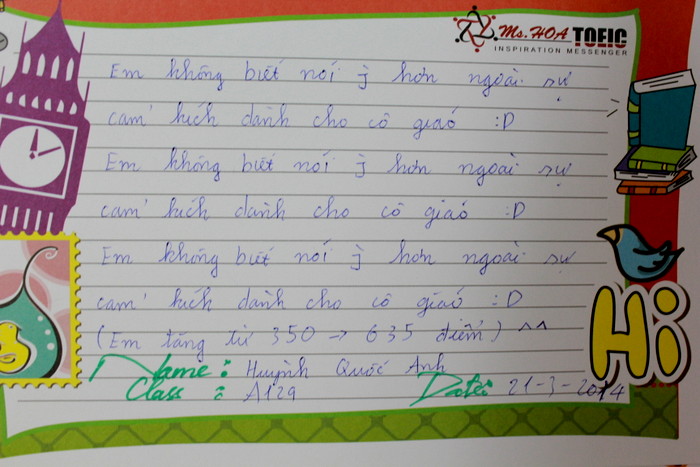 Ms. HOA TOEIC
INSPIRATION MESSENGER
Em không biết nói j hơn ngoài sự
cảm kích dành cho cô giáo :D
Em không biết nói j hơn ngoài sự
cảm kích dành cho cô giáo :D
Em không biết nói j hơn ngoài sự
cảm kích dành cho cô giáo :D
(Em tăng từ 350 → 635 điểm) ^^
Name: Huỳnh Quốc Anh
Class: A129 Date: 21-3-2014
Hi